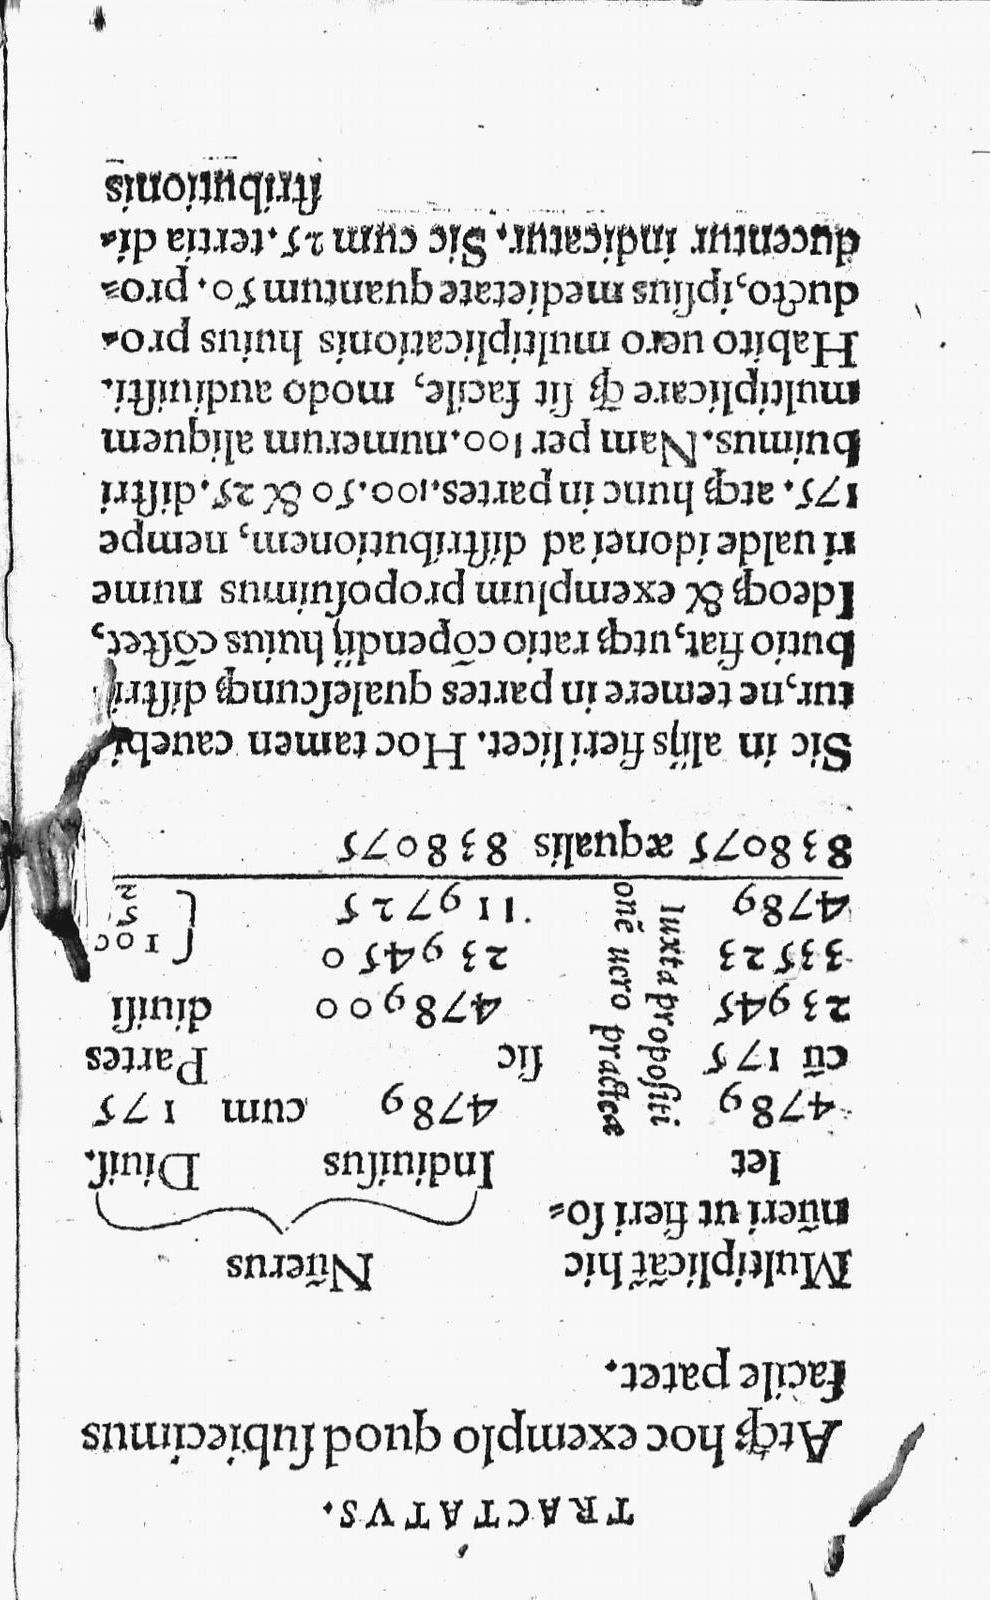 TRACTATVS.
Atq; hoc exemplo quod ſubiecimus
facile patet.
Multiplicãt hic Nũerus
nũeri ut fieri ſo=
let Indiuiſus Diuiſ.
4789 4789 cum 175
cũ 175 ſic Partes
23945 478900 diuiſi
33523 239450 100
4789 119725 5 2
Iuxta propoſiti
onẽ uero practicæ
838075 æqualis 838075
Sic in alijs fieri licet. Hoc tamen cauebi
tur, ne temere in partes qualeſcunq; diſtri
butio fiat, utq; ratio cõpendij huius cõſtet,
Ideoq; & exemplum propoſuimus nume
ri ualde idonei ad diſtributionem, nempe
175. atq; hunc in partes. 100. 50 & 25. diſtri
buimus. Nam per 100. numerum aliquem
multiplicare ꝙ ſit facile, modo audiuiſti.
Habito uero multiplicationis huius pro=
ducto, ipſius medietate quantum 50. pro=
ducentur indicatur. Sic cum 25. tertia di=
ſtributionis